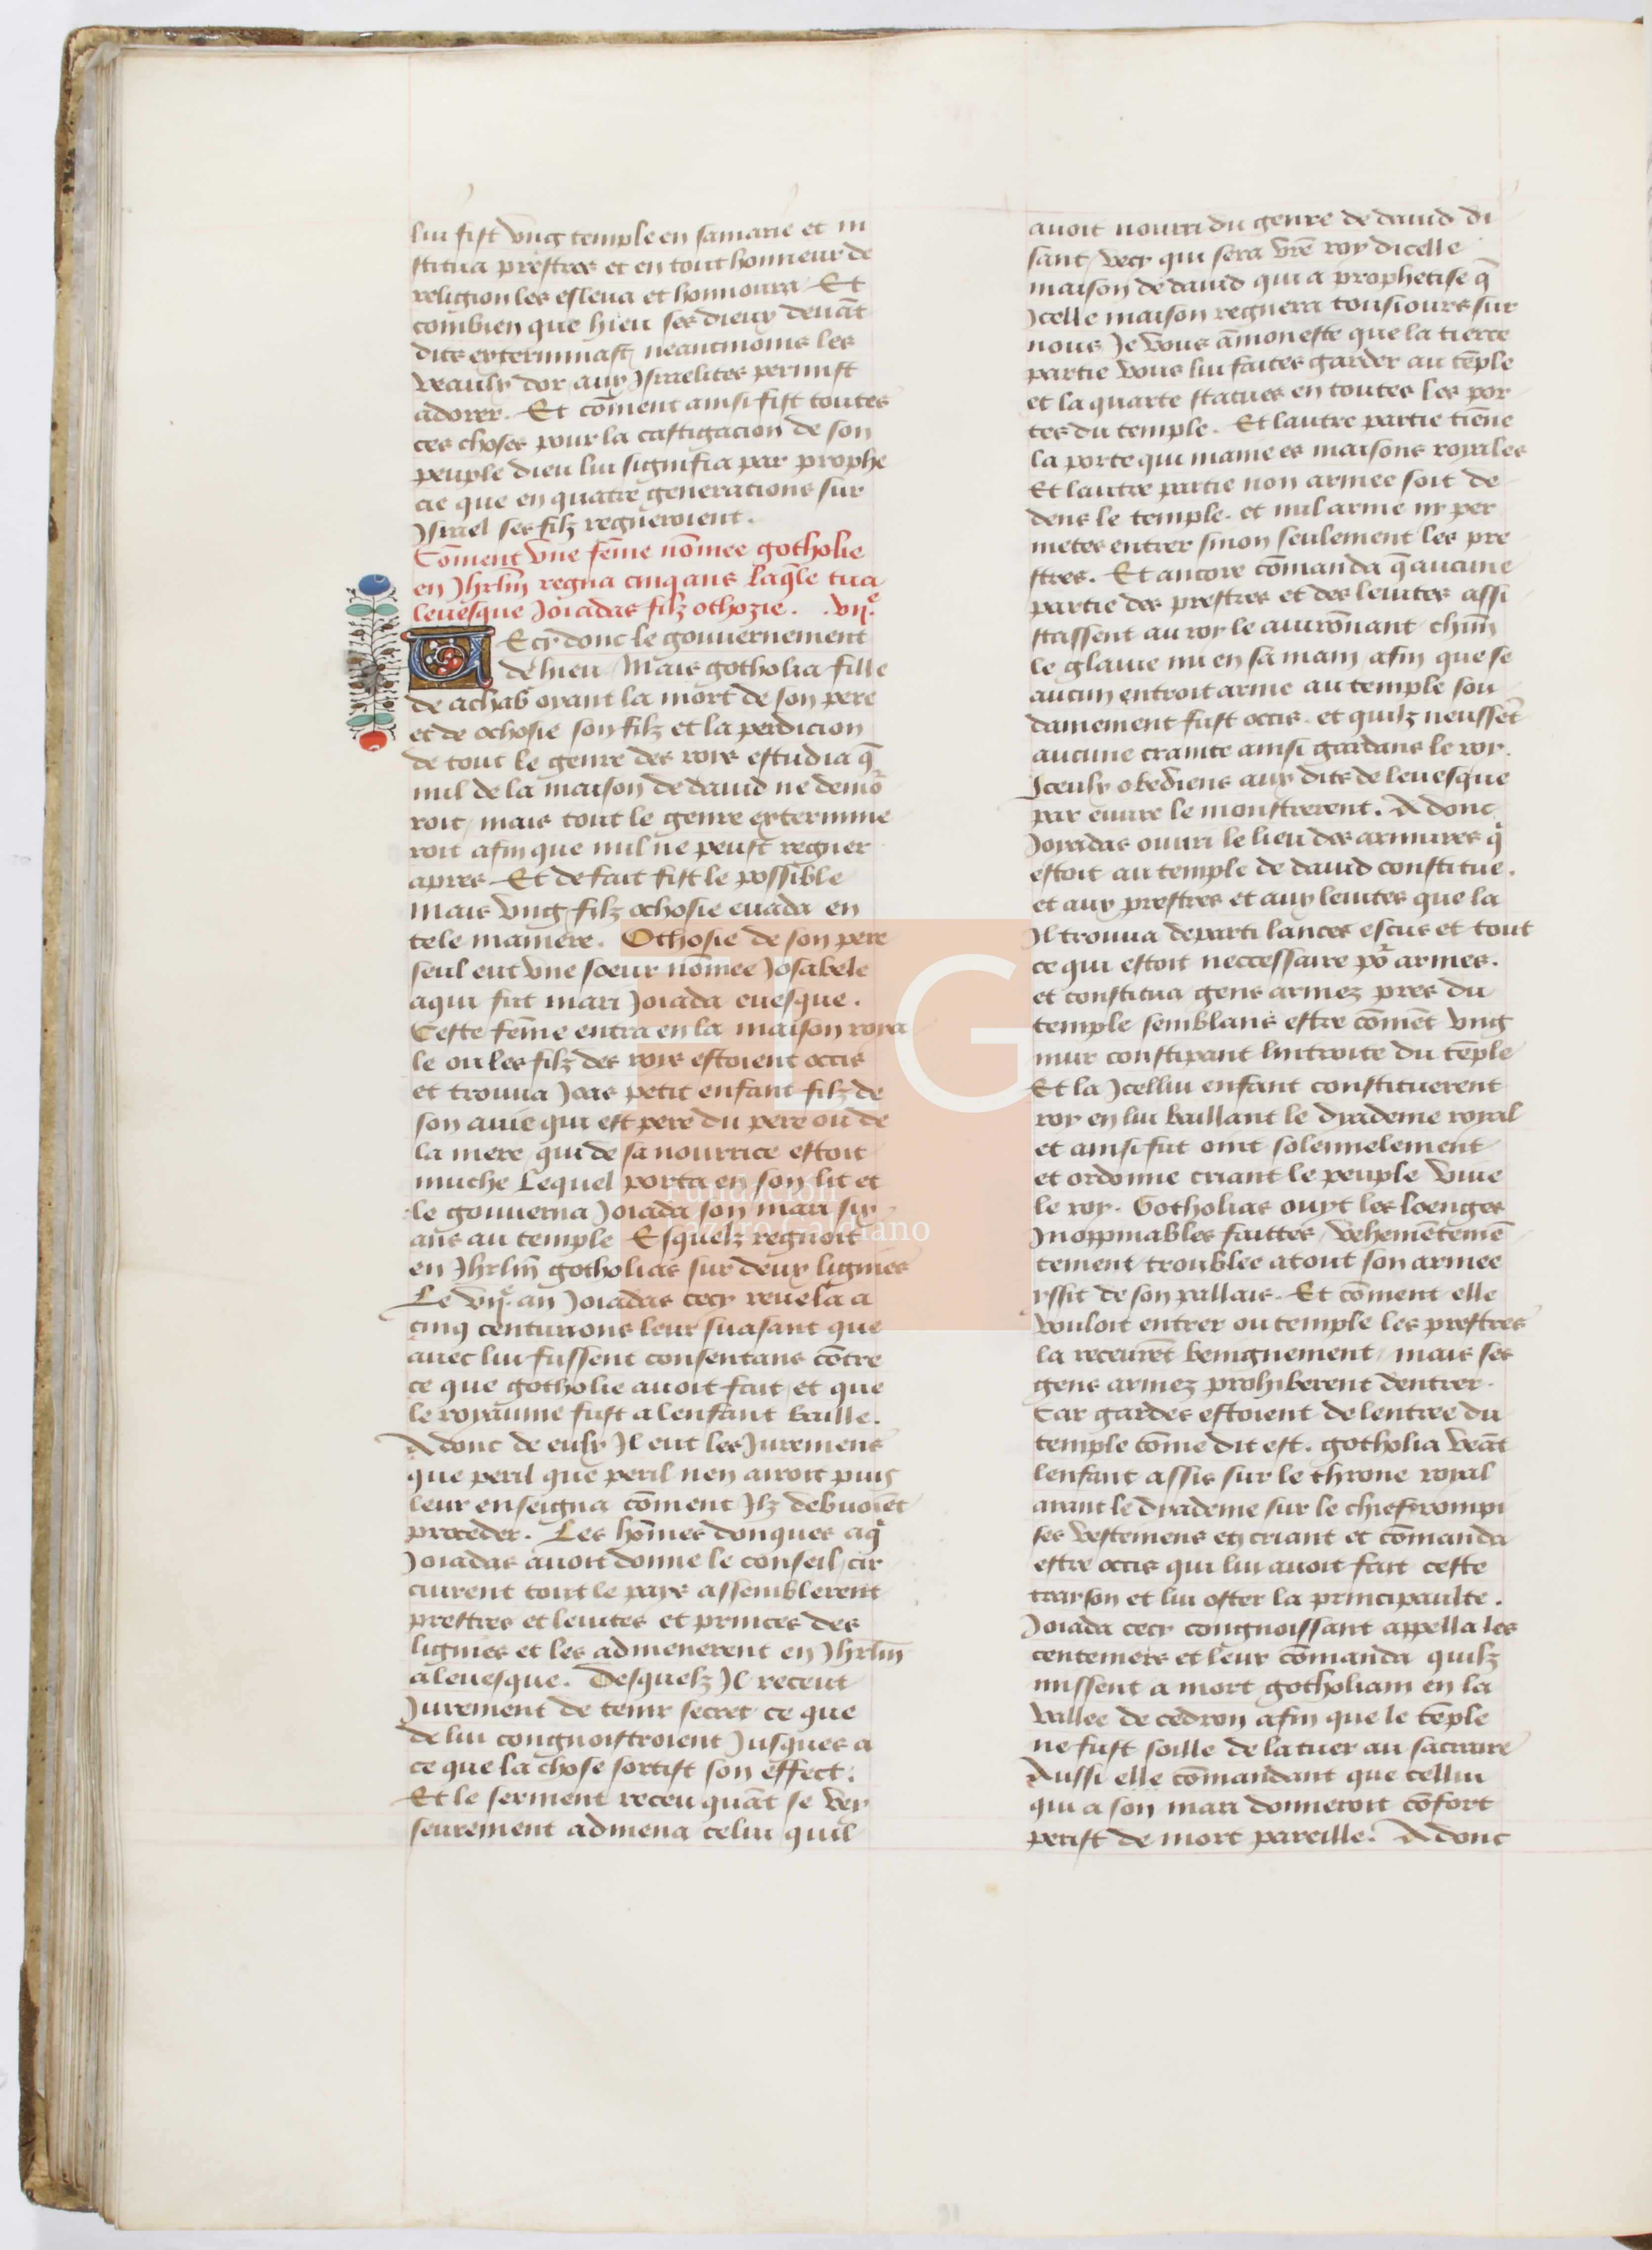 lui fist vng temple en samarie et in
stitua prestres et en tout honneur de
religion les esleua et honnoura Et
combien que hieu ses dieux deuāt
dits exterminast neantmoins les
veaulx dor aux Israelites permist
adorer. Et cōment ainsi fist toutes
ces choses pour la castigacion de son
peuple dieu lui signifia par prophe
cie que en quatre generacions sur
Israel ses filz regneroient.
Cōment vne fēme nōmee gotholie
en Jhrlm̄ regna cinq ans laq̄le tua
leuesque Joiadas filz othozie. .vij.e
Ecy donc le gouuernement
de hieu / Mais gotholia fille
de achab oyant la mort de son pere
et de ochosie son filz et la perdicion
de tout le genre des roys estudia q̄
nul de la maison de dauid ne demo
roit / mais tout le genre extermine
roit afin que nul ne peust regner
apres. Et de fait fist le possible
Mais vng filz ochosie euada en
tele maniere. Othosie de son pere
seul eut vne soeur nōmee Josabele
a qui fut mari Joiada euesque.
Ceste fēme entra en la maison roya
le ou les filz des roys estoient occis
et trouua Joas petit enfant filz de
son auie qui est pere du pere ou de
la mere / qui de sa nourrice estoit
muche Lequel porta en son lit et
le gouuerna Joiada son mari six
ans au temple Esquelz regnoit
en Jhrlm̄ gotholias sur deux lignies
Le vij.e an Joiadas cecy reuela a
cinq centurions leur suasant que
auec lui fussent consentans cōtre
ce que gotholie auoit fait / et que
le royaume fust a lenfant baille.
Adonc de eulx Il eut les Juremens
que peril que peril nen auroit puis
leur enseigna cōment Ilz debuoiēt
proceder. Les hōmes donques a q̄
Joiadas auoit donne le conseil / cir
cuirent tout le pays assemblerent
prestres et leuites et princes des
lignies et les admenerent en Jhrlm̄
a leuesque. Desquelz Il receut
Jurement de tenir secret ce que
de lui congnoistroient Jusques a
ce que la chose sortist son effect.
Et le serment receu quāt se vey
seurement admena celui quil
auoit nourri du genre de dauid di
sant / vecy qui sera vr̄e roy dicelle
maison de dauid qui a prophetise q̄
Icelle maison regnera tousiours sur
nous Je vous āmoneste que la tierce
partie vous lui faites garder au tēple
et la quarte statues en toutes les por
tes du temple. Et lautre partie tiēne
la porte qui maine es maisons royales
Et lautre partie non armee soit de
dens le temple. et nul arme ny per
metes entrer sinon seulement les pre
stres. Et ancore cōmanda q̄ aucune
partie des prestres et des leuites assi
stassent au roy le auirōnant chūn
le glaiue nu en sa main / afin que se
aucun entroit arme au temple sou
damement fust occis. et quilz neussēt
aucune crainte ainsi gardans le roy.
Iceulx obediens aux dits de leuesque
par euure le monstrerent. Adonc
Joyadas ouuri le lieu des armures q̄
estoit au temple de dauid constitue.
et aux prestres et aux leuites que la
Il trouua departi lances escus et tout
ce qui estoit neccessaire por armes.
et constitua gens armez pres du
temple semblans estre cōmēt vng
mur constipant lintroite du tēple
Et la Icellui enfant constituerent
roy en lui baillant le dyademe royal
et ainsi fut oint solennelement
et ordonne criant le peuple viue
le roy. Gotholias ouyt les loenges
Inoppinables faittes / vehemētemē
tement / troublee atout son armee
yssit de son pallais. Et cōment elle
vouloit entrer ou temple les prestres
la receurēt benignement / mais ses
gens armez prohiberent dentrer.
Car gardes estoient de lentree du
temple cōme dit est. gotholia veāt
lenfant assis sur le throne royal
aiant le dyademe sur le chief rompi
ses vestemens en criant et cōmanda
estre occis qui lui auoit fait ceste
trayson et lui oster la principaulte.
Joiada cecy congnoissant appella les
centeniers et leur cōmanda quilz
missent a mort gotholiam en la
vallee de cedron afin que le tēple
ne fust soille de la tuer au sacraire
Aussi elle cōmandant que cellui
qui a son mari donneroit cōfort
perist de mort pareille. Adonc
Fundación
Lázaro Galdiano